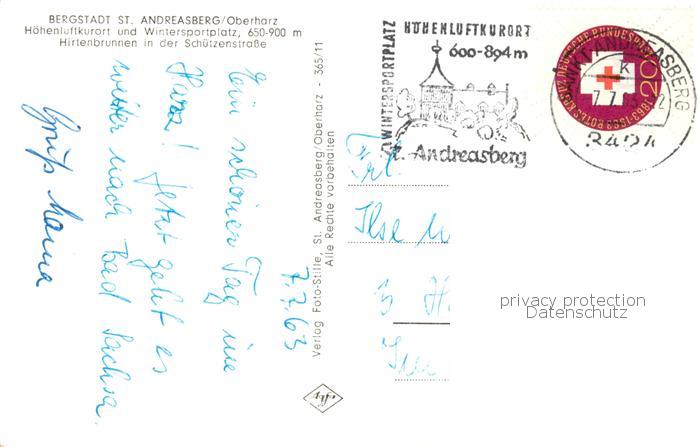 BERGSTADT ST. ANDREASBERG/Oberharz
Höhenluftkurort und Wintersportplatz, 650-900 m
Hirtenbrunnen in der Schützenstraße
7.7.63
Ein schöner Tag im
Harz! Jetzt geht es
weiter nach Bad Sachsa.
Gruß Mama
Verlag Foto-Stille, St. Andreasberg/Oberharz - 365/11
Alle Rechte vorbehalten
Agfa
WINTERSPORTPLATZ
HÖHENLUFTKURORT
600-894m
St. Andreasberg
DEUTSCHE BUNDESPOST
20
1863-1963 ROTES KREUZ
ANDREASBERG
K
7.7.
3424
Frl.
Ilse
3
privacy protection
Datenschutz